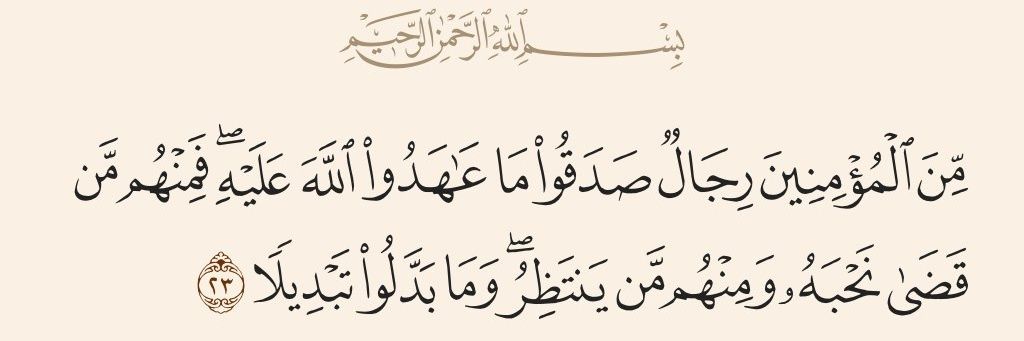 بِسْمِ ٱللَّهِ ٱلرَّحْمَٰنِ ٱلرَّحِيمِ
مِّنَ ٱلْمُؤْمِنِينَ رِجَالٌ صَدَقُوا۟ مَا عَٰهَدُوا۟ ٱللَّهَ عَلَيْهِ ۖ فَمِنْهُم مَّن
قَضَىٰ نَحْبَهُۥ وَمِنْهُم مَّن يَنتَظِرُ ۖ وَمَا بَدَّلُوا۟ تَبْدِيلًا ٢٣